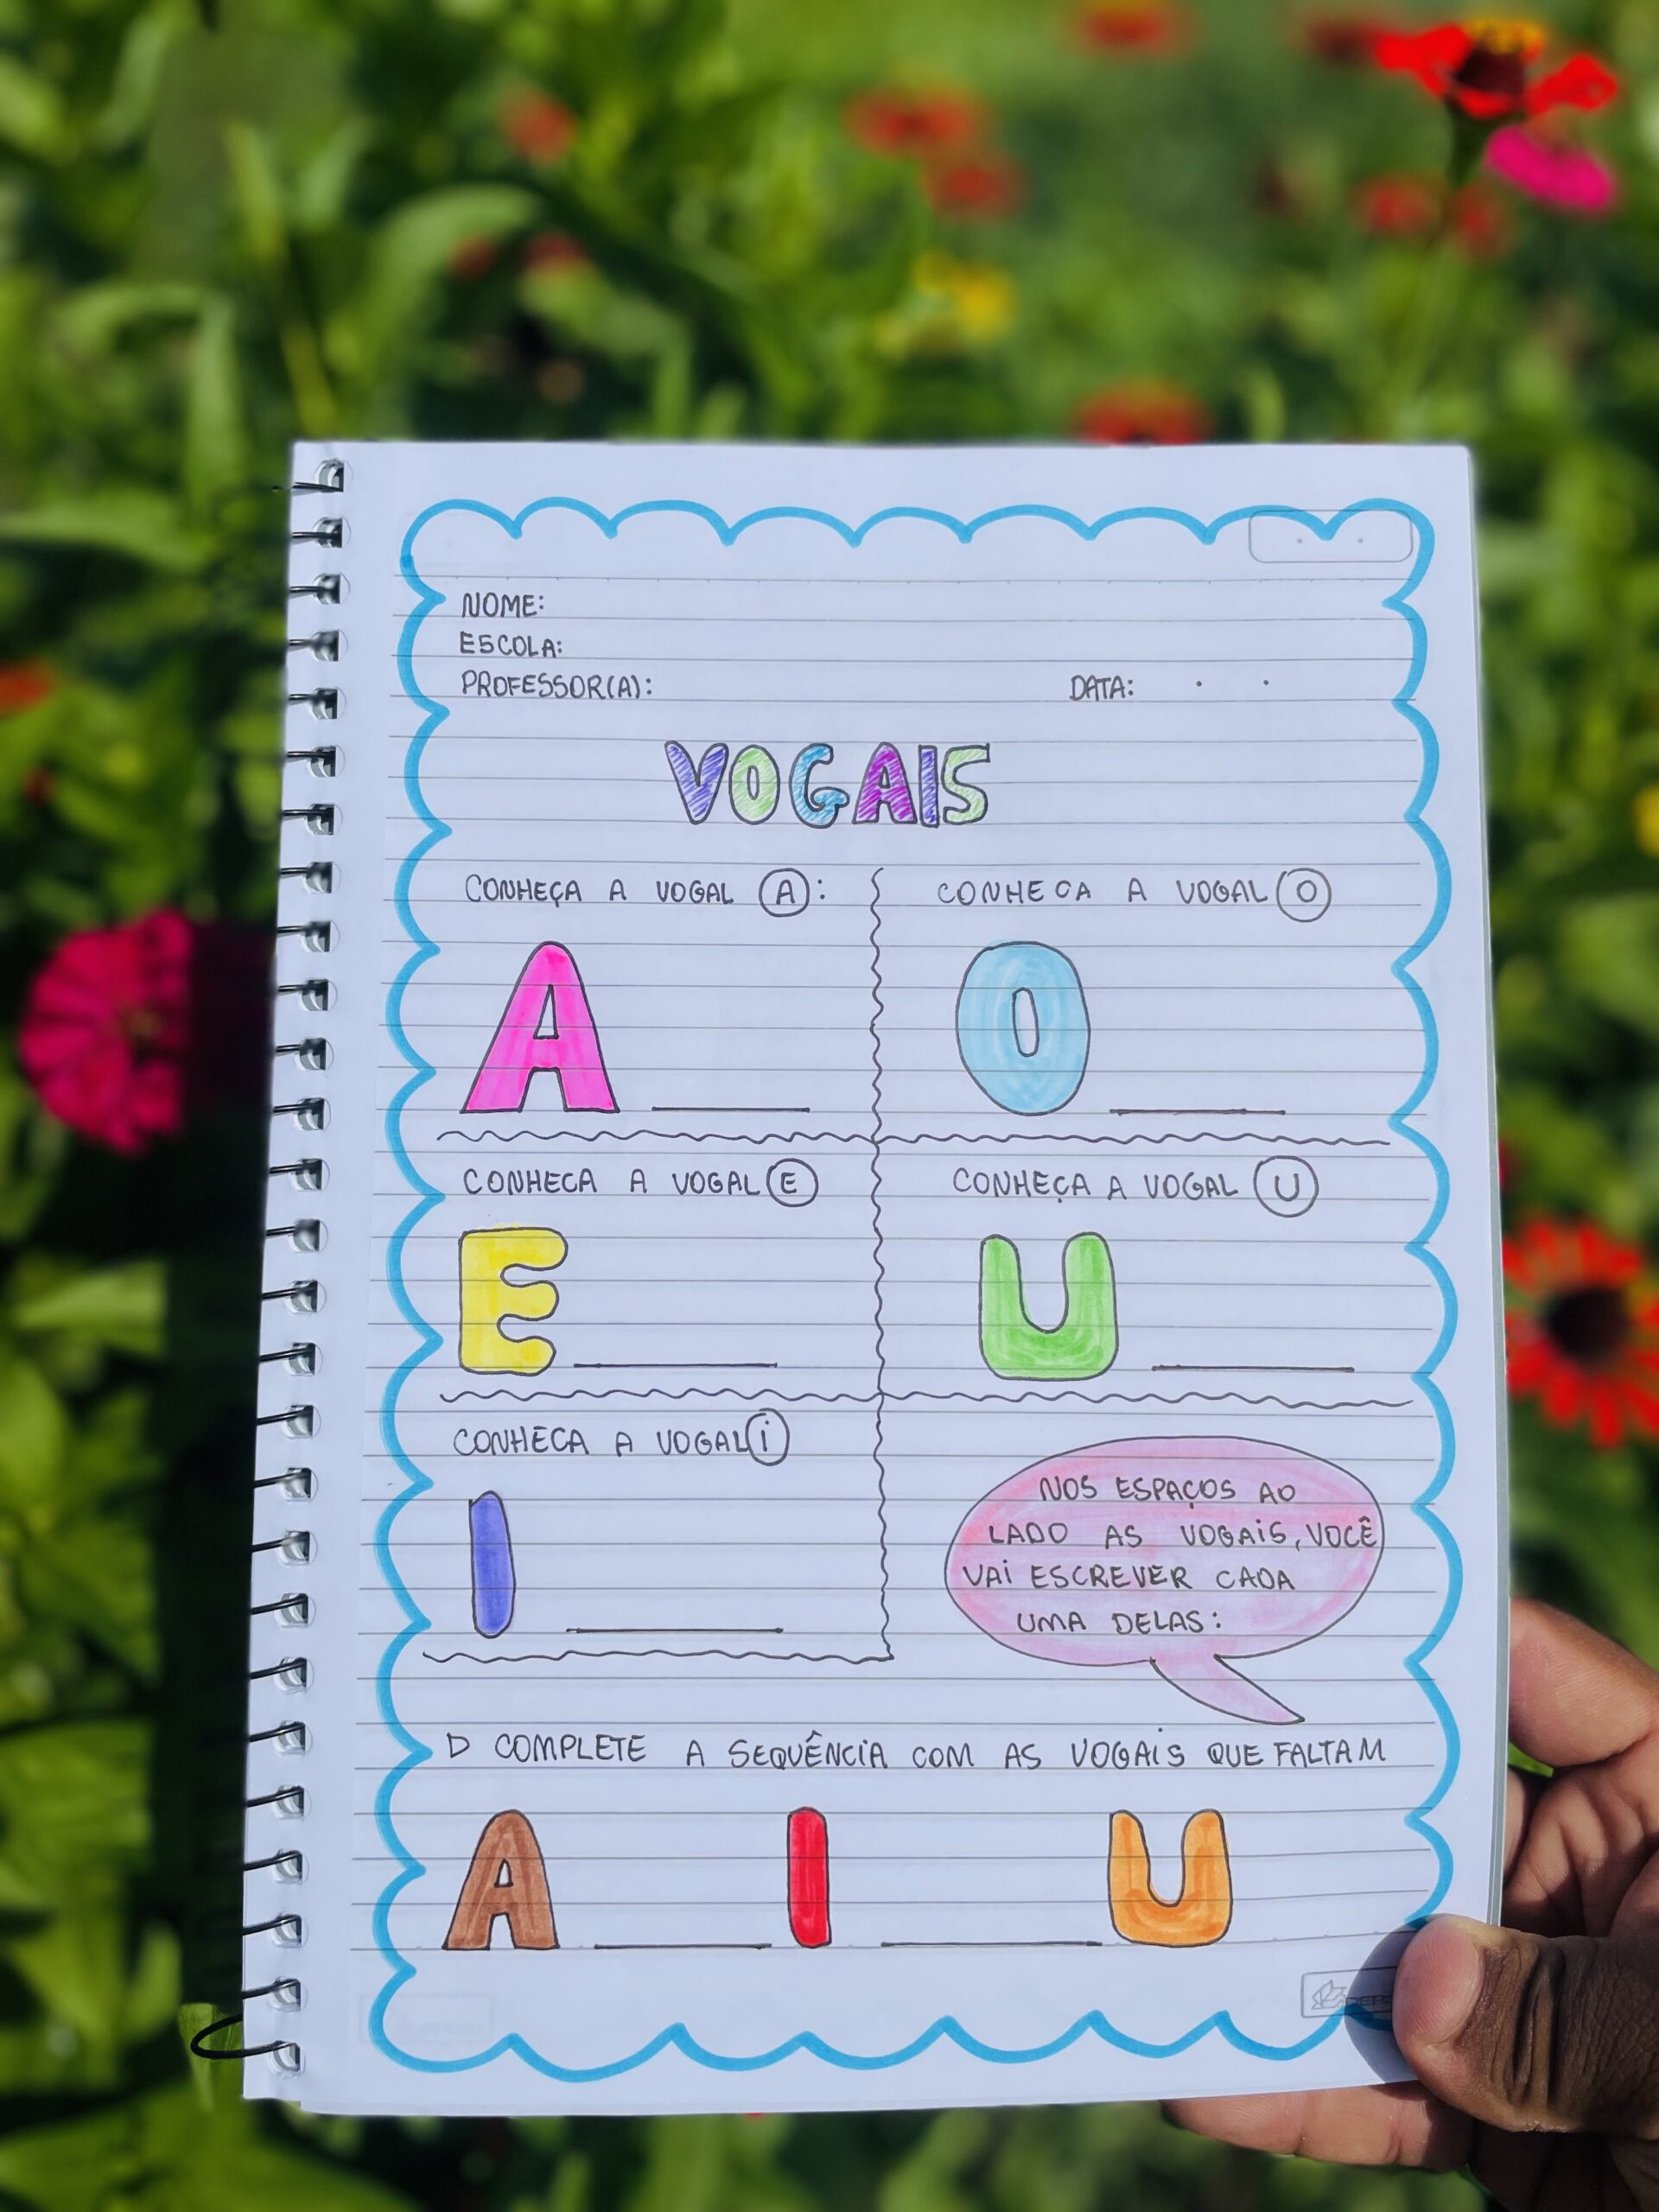 NOME:
ESCOLA:
PROFESSOR(A): DATA: . .
VOGAIS
CONHEÇA A VOGAL A:
A
CONHECA A VOGAL O
O
CONHECA A VOGAL E
E
CONHEÇA A VOGAL U
U
CONHECA A VOGAL i
I
NOS ESPAÇOS AO
LADO AS VOGAiS, VOCÊ
VAi ESCREVER CADA
UMA DELAS:
D COMPLETE A SEQUÊNCiA COM AS VOGAiS QUE FALTAM
A I U